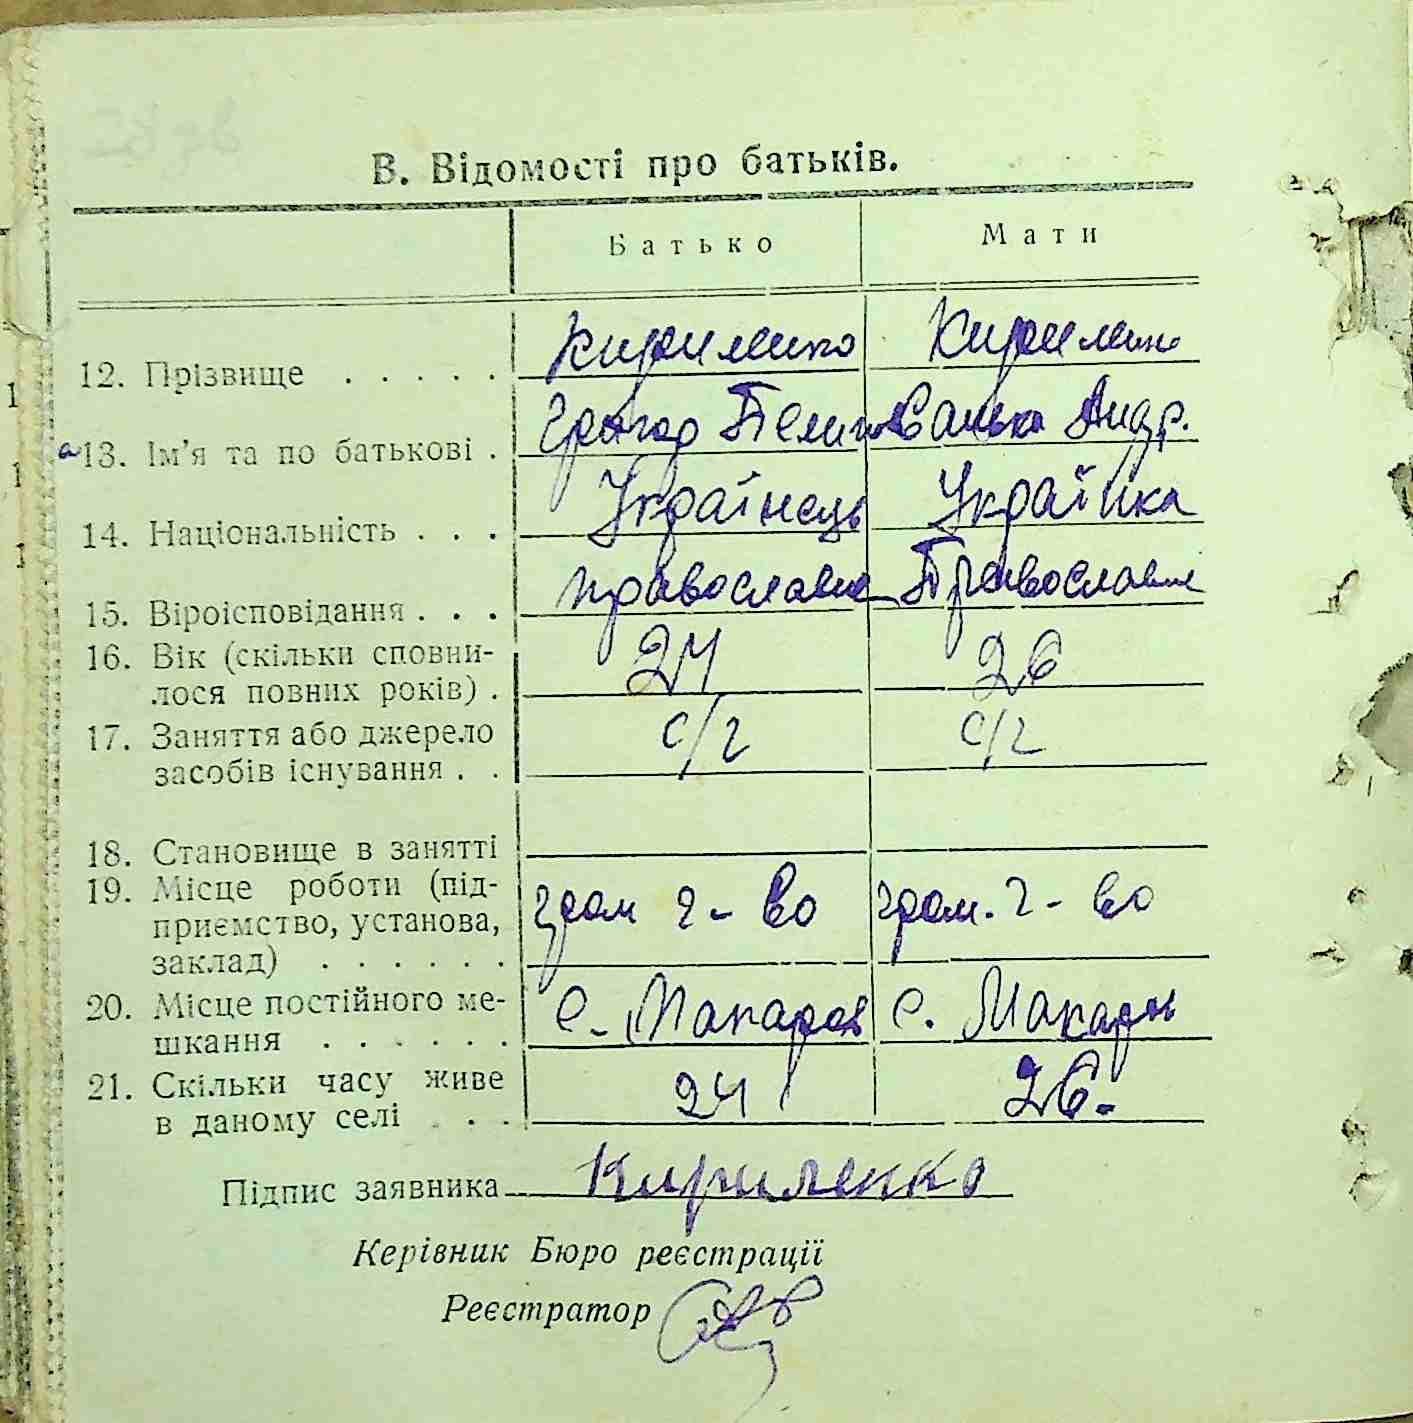 В. Відомості про батьків.
Батько Мати
12. Прізвище . . . . . Кириленко Кирилен
13. Ім'я та по батькові . Григор Пелип Санька Андр.
14. Національність . . . Українець Українка
15. Віроісповідання . . . православне Православне
16. Вік (скільки сповни-
лося повних років) . 24 26
17. Заняття або джерело с/г с/г
засобів існування . .
18. Становище в занятті
19. Місце роботи (під-
приємство, установа, гром г-во гром. г-во
заклад) . . . . . .
20. Місце постійного ме- с. Макарів с. Макарів
шкання . . . . . .
21. Скільки часу живе 24 26.
в даному селі . . .
Підпис заявника Кириленко
Керівник Бюро реєстрації
Реєстратор